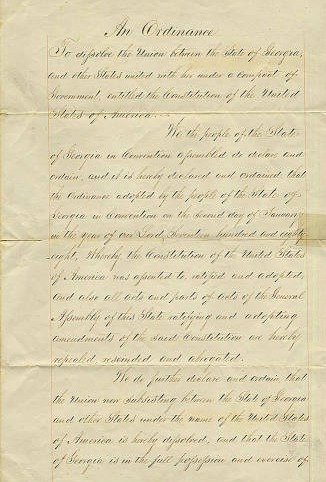 An Ordinance
To dissolve the Union between the State of Georgia,
and other States united with her under a compact of
Government, entitled the Constitution of the United
States of America.
We the people of the State
of Georgia in Convention assembled do declare and
ordain, and it is hereby declared and ordained, that
the Ordinance adopted by the people of the State of
Georgia in Convention on the Second day of January
in the year of our Lord, Seventeen hundred and eighty-
eight, whereby the Constitution of the United States
of America was assented to, ratified and adopted;
and also all acts and parts of acts of the General
Assembly of this State ratifying and adopting
amendments of the said Constitution are hereby
repealed rescinded and abrogated.
We do further declare and ordain that
the Union now subsisting between the State of Georgia
and other States under the name of the United States
of America is hereby dissolved, and that the State
of Georgia is in the full possession and exercise of